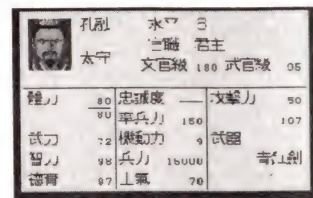 孔融
職 君主
太守 文官級 180 武官級 05
體力 80 忠誠度 — 攻擊力 50
80 率兵力 150 107
武力 72 機動力 9 武器
智力 兵力 15000
德育 87 士氣 70